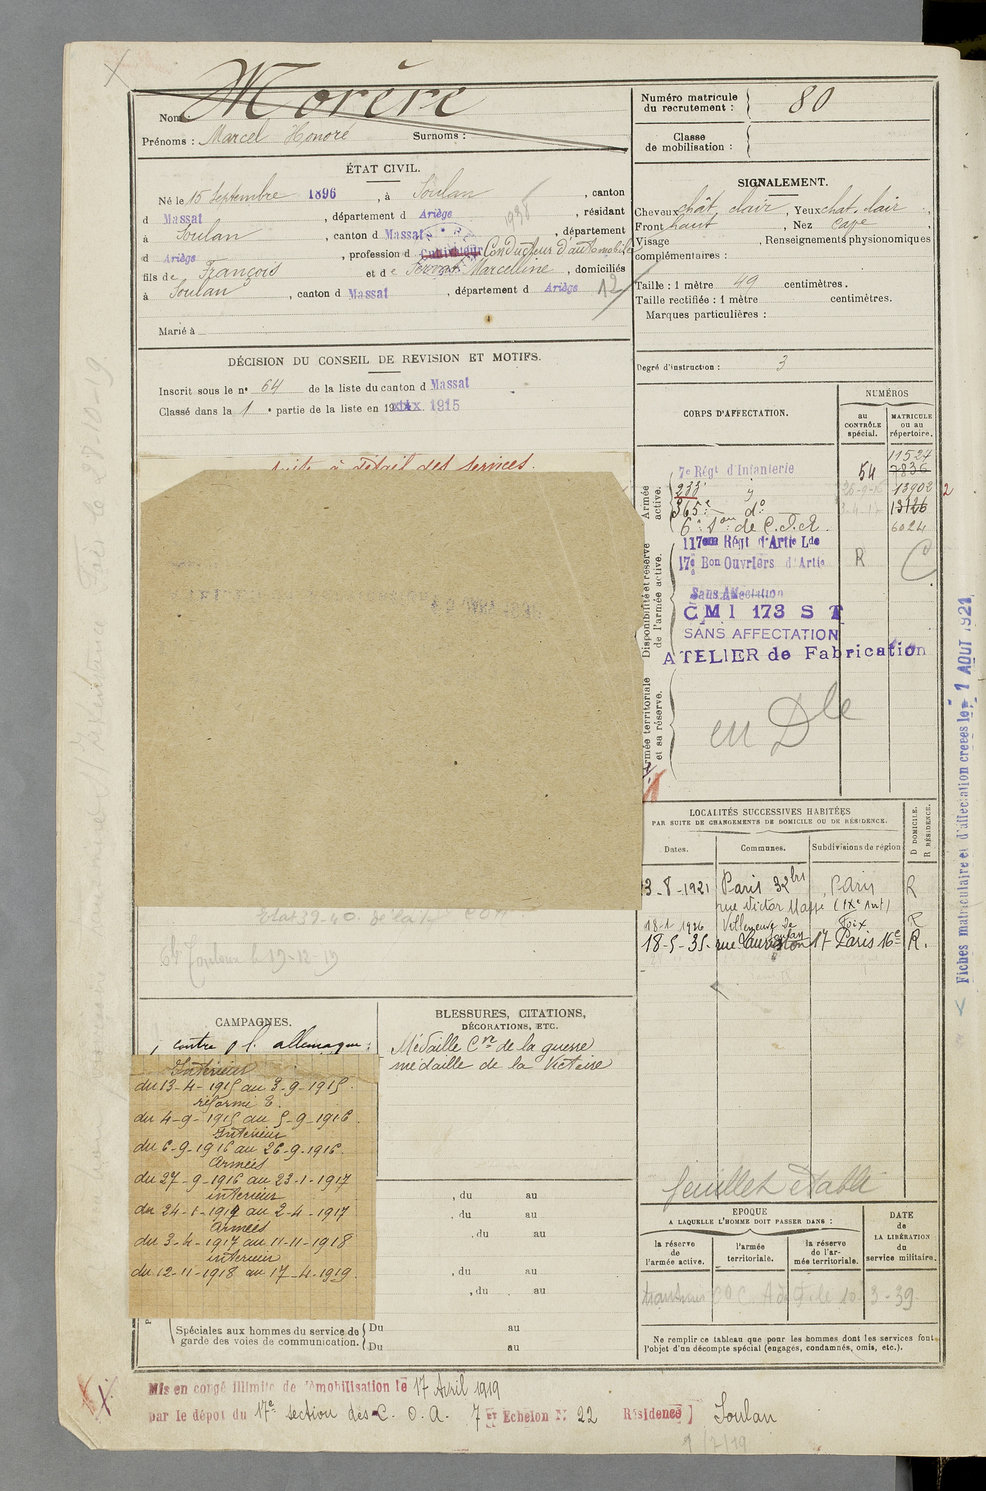 Nom Morère
Prénoms : Marcel Honoré Surnoms :
Numéro matricule du recrutement : 80
Classe de mobilisation :
ÉTAT CIVIL.
Né le 15 Septembre 1896, à Soulan, canton
d Massat, département d Ariège, résidant
à Soulan, canton d Massat, département
d Ariège, profession d Cultivateur Conducteur d'automobile
fils de François et de Marcelline, domiciliés
à Soulan, canton d Massat, département d Ariège 12
Marié à
SIGNALEMENT.
Cheveux chât. clair, Yeux chat. clair,
Front haut, Nez cave
Visage , Renseignements physionomiques
complémentaires :
Taille : 1 mètre 49 centimètres.
Taille rectifiée : 1 mètre centimètres.
Marques particulières :
Degré d'instruction : 3
DÉCISION DU CONSEIL DE REVISION ET MOTIFS.
Inscrit sous le n° 64 de la liste du canton d Massat
Classé dans la 1e partie de la liste en 1915
suite à détail des services.
CORPS D'AFFECTATION.
NUMÉROS
au CONTRÔLE spécial.
MATRICULE ou au répertoire.
Armée active.
7e Régt d'Infanterie 54 11524
7836
233e 13902 2
365e do 13126
6e Son de C.O.A. 6024
Disponibilité et réserve de l'armée active.
117eme Régt d'Artie Lde
17e Bon Ouvriers d'Artie R C
Sans Affectation
CMI 173 S T
SANS AFFECTATION
ATELIER de Fabrication
Armée territoriale et sa réserve.
en Dle
Fiches matriculaire et d'affectation créées le 1 AOUT 1921
LOCALITÉS SUCCESSIVES HABITÉES
PAR SUITE DE CHANGEMENTS DE DOMICILE OU DE RÉSIDENCE.
Dates. Communes. Subdivisions de région D DOMICILE. R RÉSIDENCE.
3-8-1921 Paris 32bis Paris R
rue Victor Massé (IXe Arrt)
18-1-1926 Foix R
18-5-35 rue Lauriston 17 Paris 16e R.
Etat 39-40.
Toulouse le 19-12-19
CAMPAGNES.
contre l'allemagne :
Intérieur
du 13-4-1915 au 3-9-1915.
réformé
du 4-9-1915 au 5-9-1916.
Intérieur
du 6-9-1916 au 26-9-1916.
Armées
du 27-9-1916 au 23-1-1917
intérieur
du 24-1-1917 au 2-4-1917.
Armées
du 3-4-1917 au 11-11-1918
intérieur
du 12-11-1918 au 17-4-1919.
BLESSURES, CITATIONS,
DÉCORATIONS, ETC.
Médaille Cve de la guerre
médaille de la Victoire
, du au
, du au
, du au
, du au
, du au
Spéciales aux hommes du service de garde des voies de communication.
Du au
Du au
feuillet établi
EPOQUE
A LAQUELLE L'HOMME DOIT PASSER DANS :
la réserve de l'armée active.
l'armée territoriale.
la réserve de l'armée territoriale.
DATE de LA LIBÉRATION du service militaire.
Ne remplir ce tableau que pour les hommes dont les services font
l'objet d'un décompte spécial (engagés, condamnés, omis, etc.).
Mis en congé illimité de démobilisation le 17 Avril 1919
par le dépôt du 17e section des C. O. A. 7 Echelon N° 22 Résidence Soulan